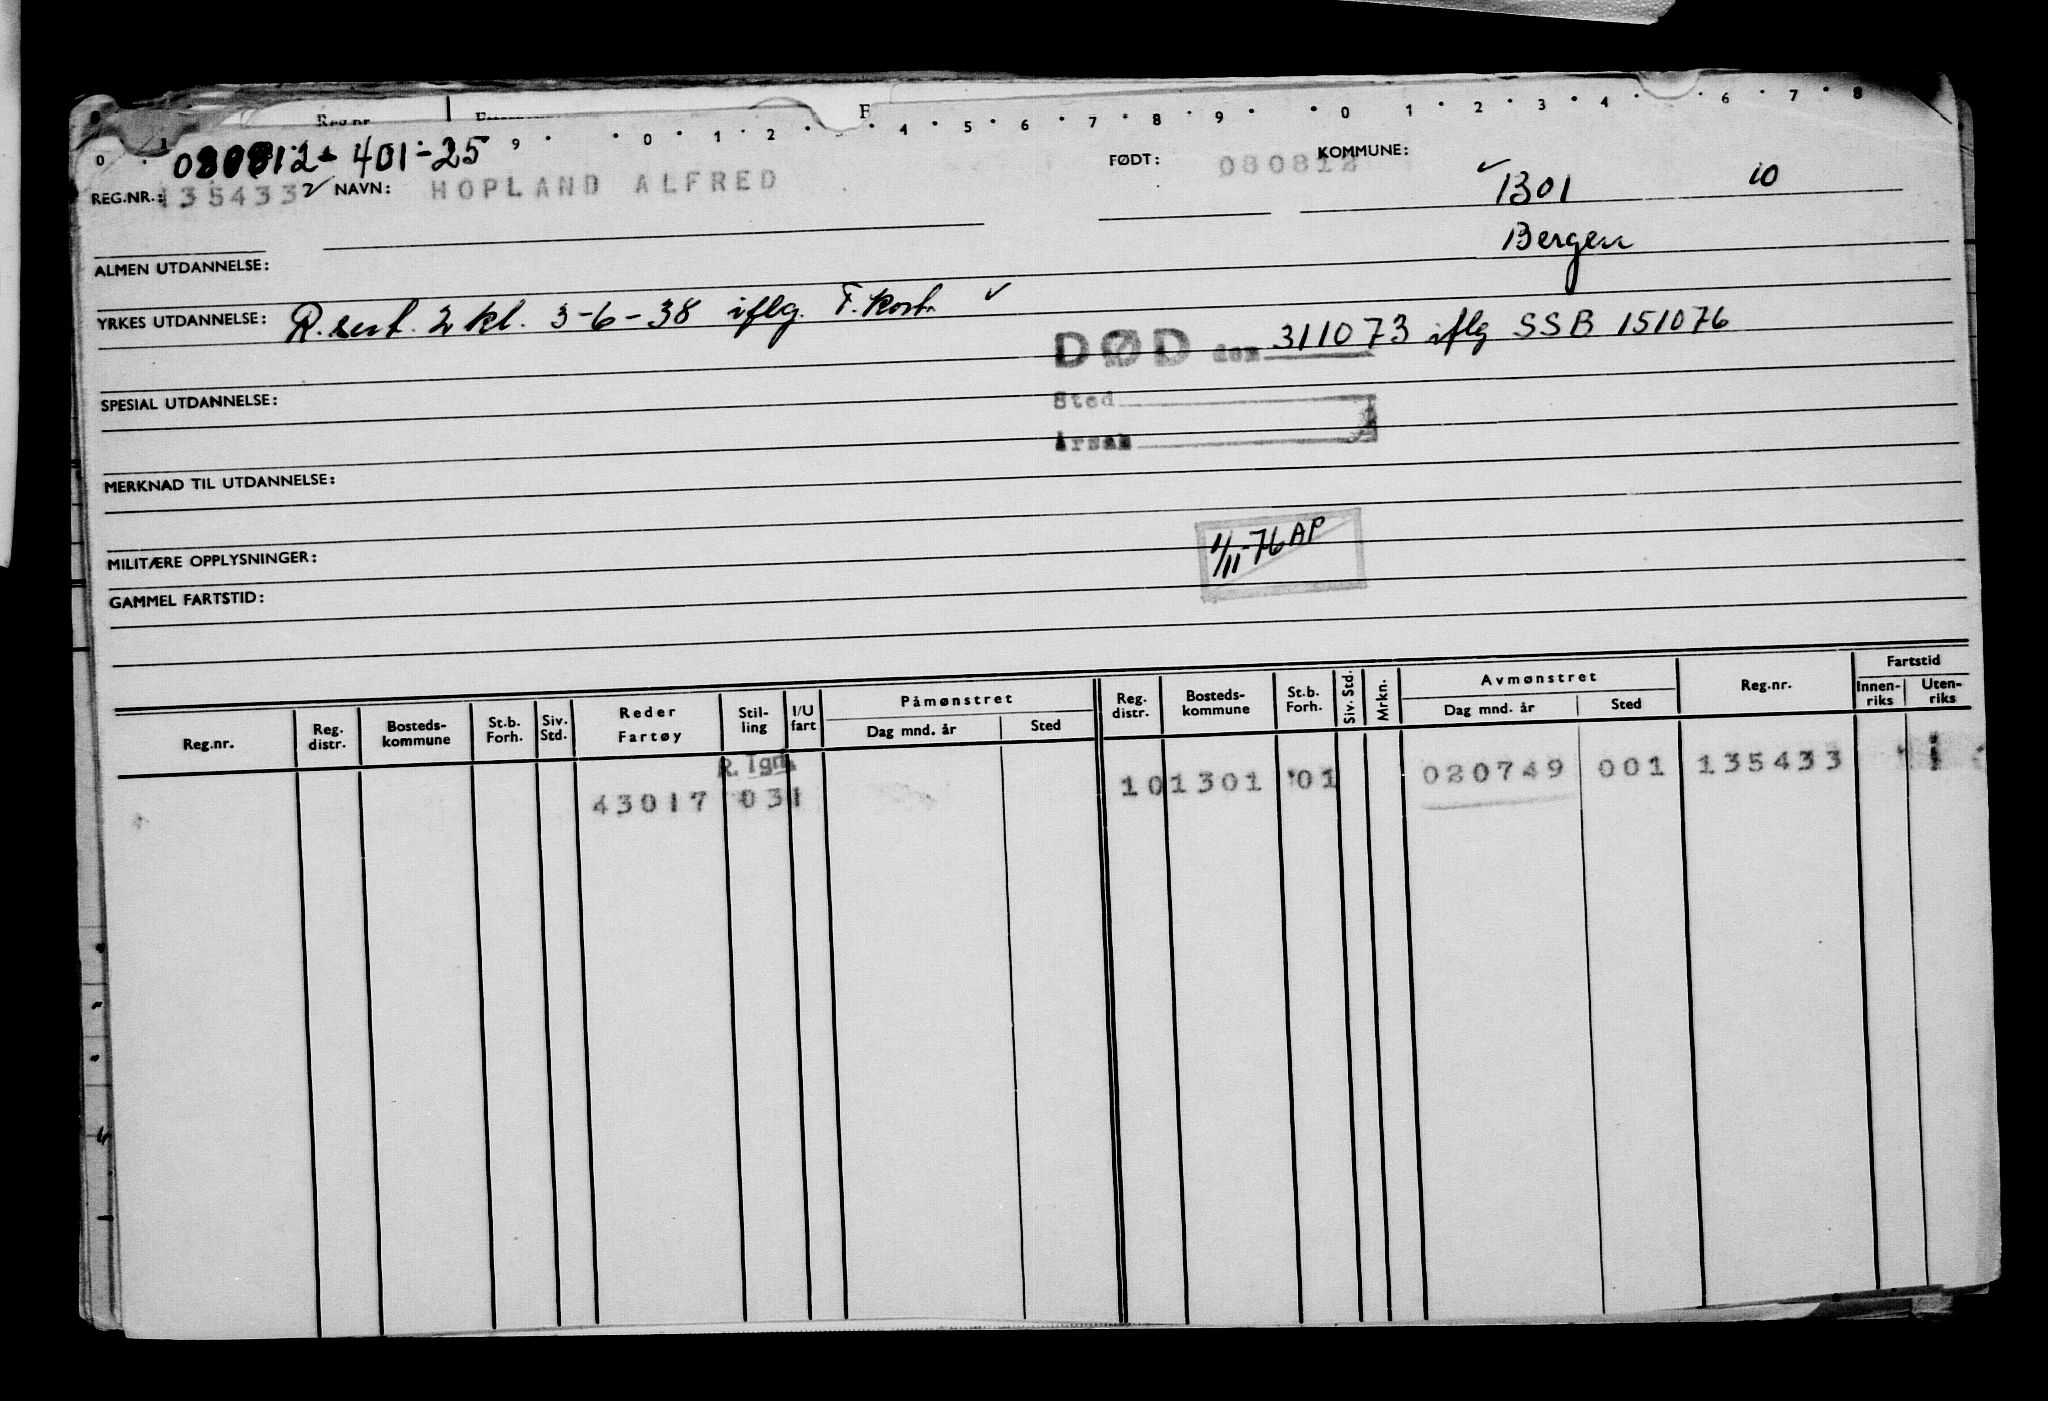 0 1 9 0 1 2 4 5 6 7 8 9 0 1 2 3 4 6 7 8
080812-401-25
REG.NR.: 135433 NAVN: HOPLAND ALFRED FØDT: 080812 KOMMUNE: 1301 10
Bergen
ALMEN UTDANNELSE:
YRKES UTDANNELSE: R. sert. 2 kl. 3-6-38 iflg. F. Kort.
DØD den 311073 iflg SSB 151076
SPESIAL UTDANNELSE:
Sted
Årsak
MERKNAD TIL UTDANNELSE:
1/11-76 AP
MILITÆRE OPPLYSNINGER:
GAMMEL FARTSTID:
Reg.nr. Reg. distr. Bosteds-kommune St.b. Forh. Siv. Std. Reder Fartøy Stil-ling I/U fart Påmønstret Dag mnd. år Sted Reg. distr. Bosteds-kommune St.b. Forh. Siv. Std. Mrkn. Avmønstret Dag mnd. år Sted Reg.nr. Fartstid Innen-riks Uten-riks
R. Tgn.
43017 031 101301 01 020749 001 135433